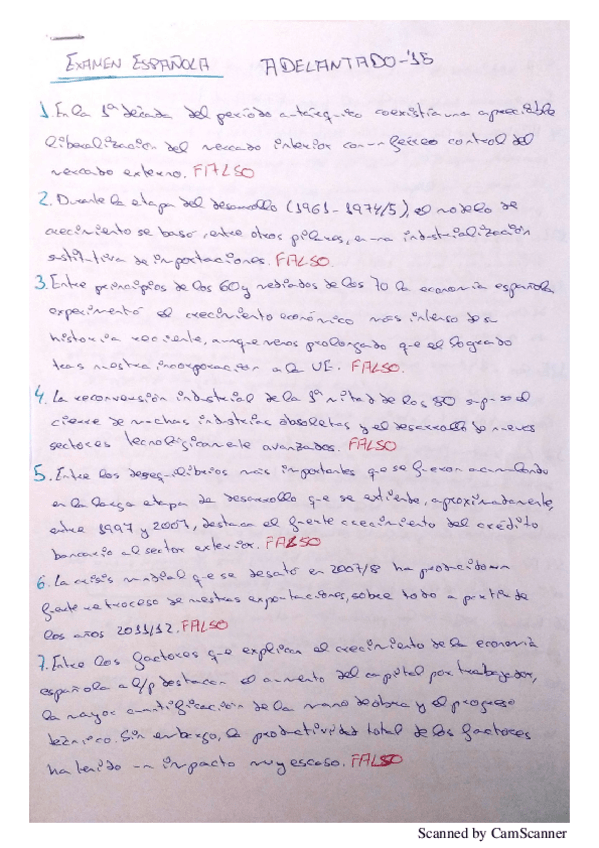 EXAMEN ESPAÑOLA ADELANTADO-'15
1. En la 1ª década del período autárquico coexistía una apreciable
liberalización del mercado interior con un férreo control del
mercado externo. FALSO
2. Durante la etapa del desarrollo (1961-1974/5), el modelo de
crecimiento se basó, entre otros pilares, en una industrialización
sustitutiva de importaciones. FALSO
3. Entre principios de los 60 y mediados de los 70 la economía española
experimentó el crecimiento económico más intenso de su
historia reciente, aunque menos prolongado que el logrado
tras nuestra incorporación a la UE. FALSO.
4. La reconversión industrial de la 1ª mitad de los 80 supuso el
cierre de muchas industrias obsoletas y el desarrollo de nuevos
sectores tecnológicamente avanzados. FALSO
5. Entre los desequilibrios más importantes que se fueron acumulando
en la larga etapa de desarrollo que se extiende, aproximadamente,
entre 1997 y 2007, destaca el fuerte crecimiento del crédito
bancario al sector exterior. FALSO
6. La crisis mundial que se desató en 2007/8 ha producido un
fuerte retroceso de nuestras exportaciones, sobre todo a partir de
los años 2011/12. FALSO
7. Entre los factores que explican el crecimiento de la economía
española a l/p destacan el aumento del capital por trabajador,
la mayor cualificación de la mano de obra y el progreso
técnico. Sin embargo, la productividad total de los factores
ha tenido un impacto muy escaso. FALSO
Scanned by CamScanner